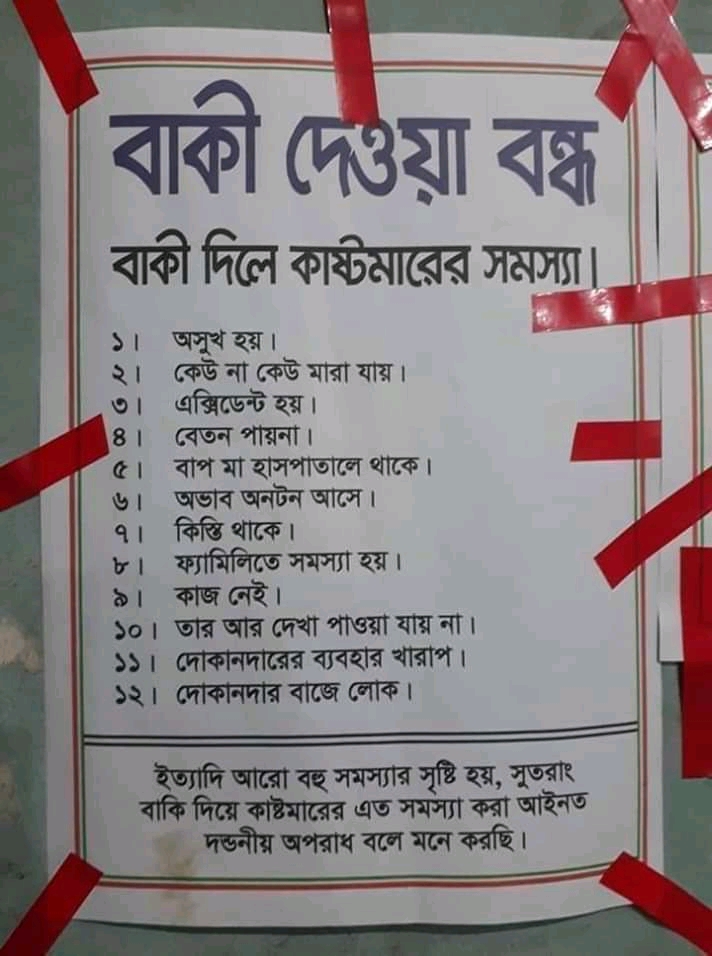 বাকী দেওয়া বন্ধ
বাকী দিলে কাষ্টমারের সমস্যা।
১। অসুখ হয়।
২। কেউ না কেউ মারা যায়।
৩। এক্সিডেন্ট হয়।
৪। বেতন পায়না।
৫। বাপ মা হাসপাতালে থাকে।
৬। অভাব অনটন আসে।
৭। কিস্তি থাকে।
৮। ফ্যামিলিতে সমস্যা হয়।
৯। কাজ নেই।
১০। তার আর দেখা পাওয়া যায় না।
১১। দোকানদারের ব্যবহার খারাপ।
১২। দোকানদার বাজে লোক।
ইত্যাদি আরো বহু সমস্যার সৃষ্টি হয়, সুতরাং
বাকি দিয়ে কাষ্টমারের এত সমস্যা করা আইনত
দন্ডনীয় অপরাধ বলে মনে করছি।